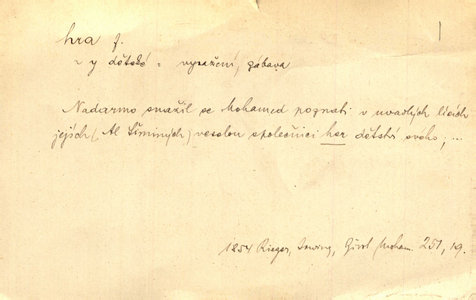 hra f.
~ y dětské = vyražení, zábava
Nadarmo snažil se Mohamed poznati v uvadlých lících
jejích (Al Šiminých) veselou společnici her dětství svého; ...
1854 Rieger, Irwing, Givot Moham. 251, 19.